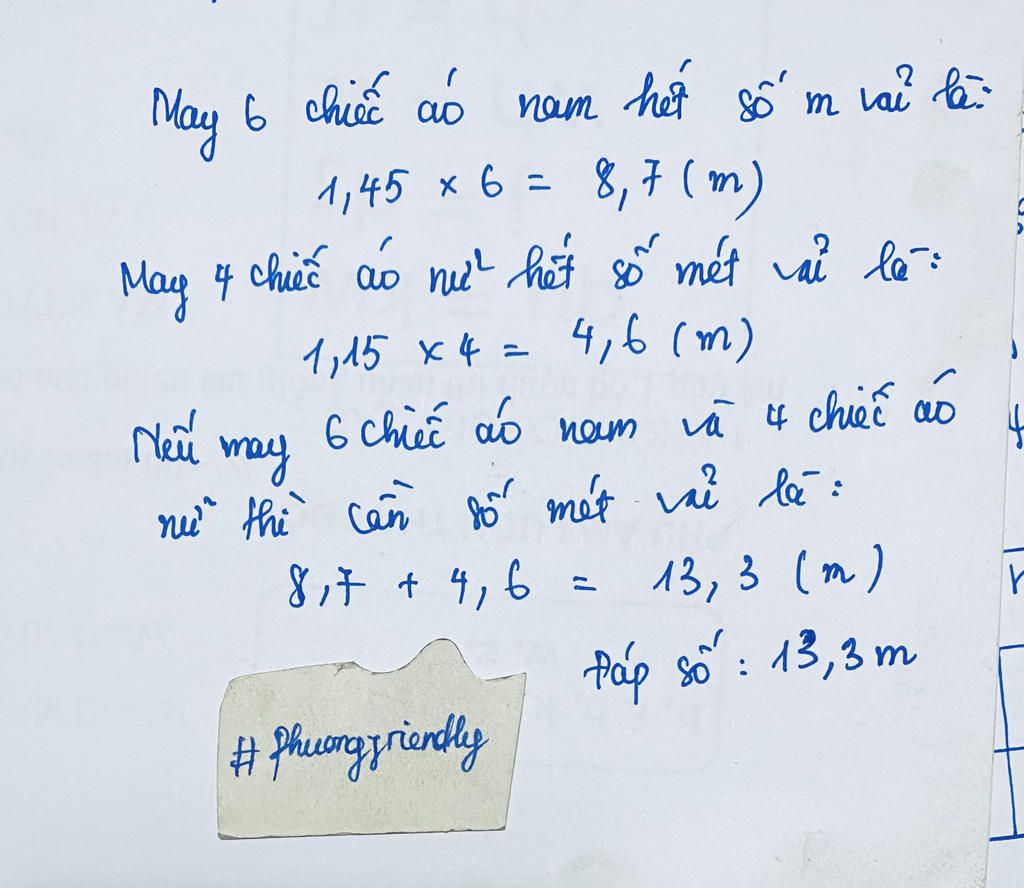 May 6 chiếc áo nam hết số m vải là:
1,45 × 6 = 8,7 (m)
May 4 chiếc áo nữ hết số mét vải là:
1,15 × 4 = 4,6 (m)
Nếu may 6 chiếc áo nam và 4 chiếc áo
nữ thì cần số mét vải là:
8,7 + 4,6 = 13,3 (m)
Đáp số: 13,3 m
# phuongfriendly